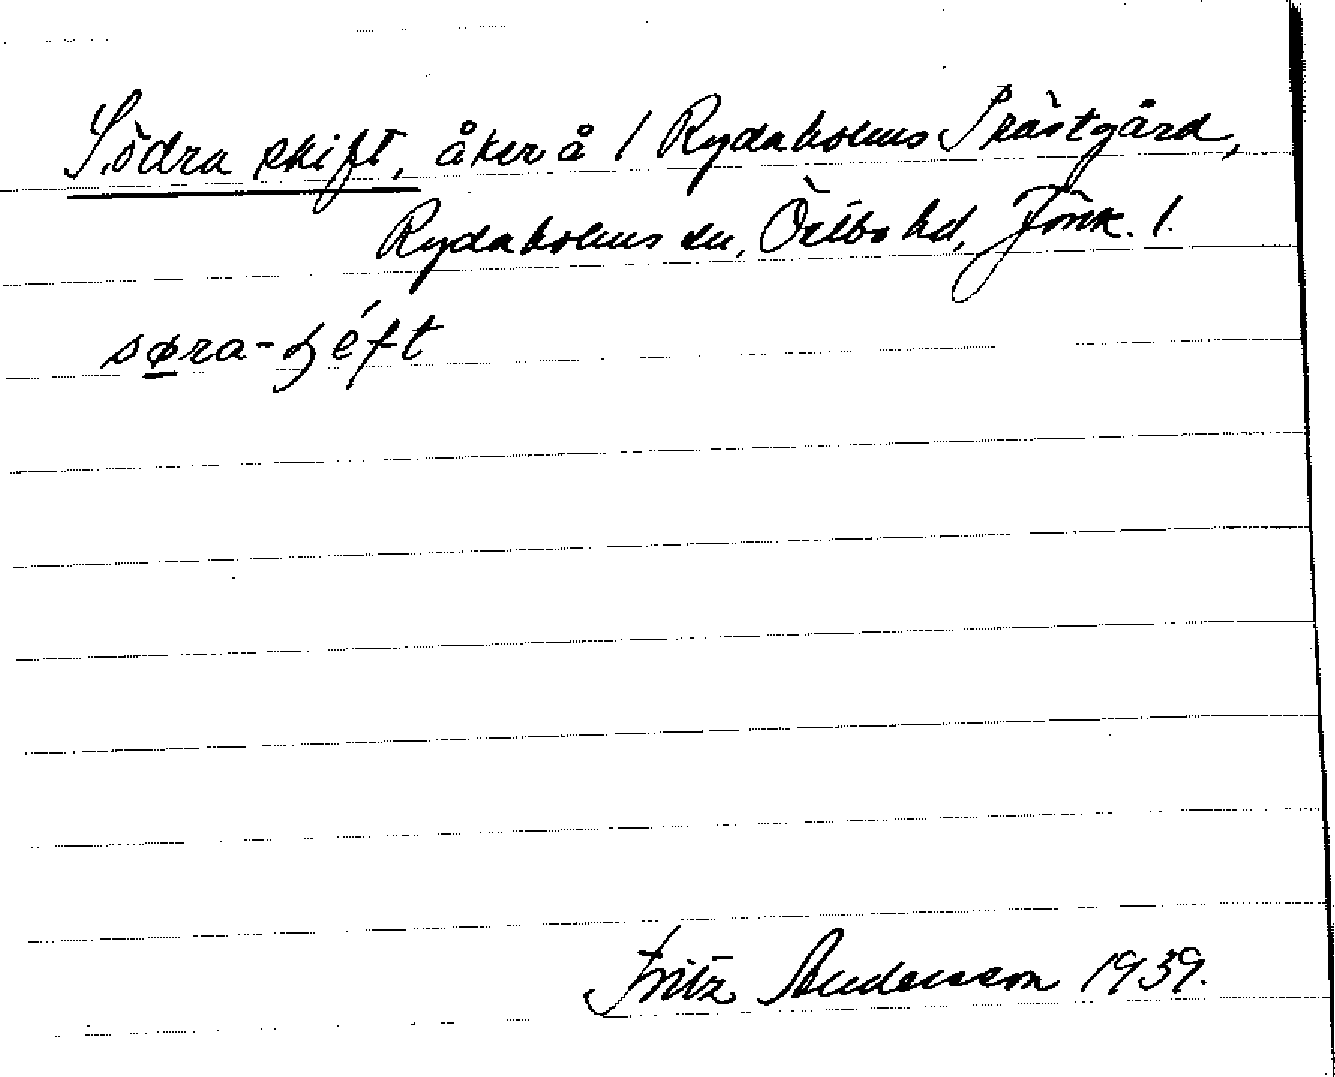 Södra skift, åker å 1 Rydaholms Prästgård,
Rydaholms sn, Östbo hd, Jönk. l.
søra-ʒéft
Fritz Andersson 1939.